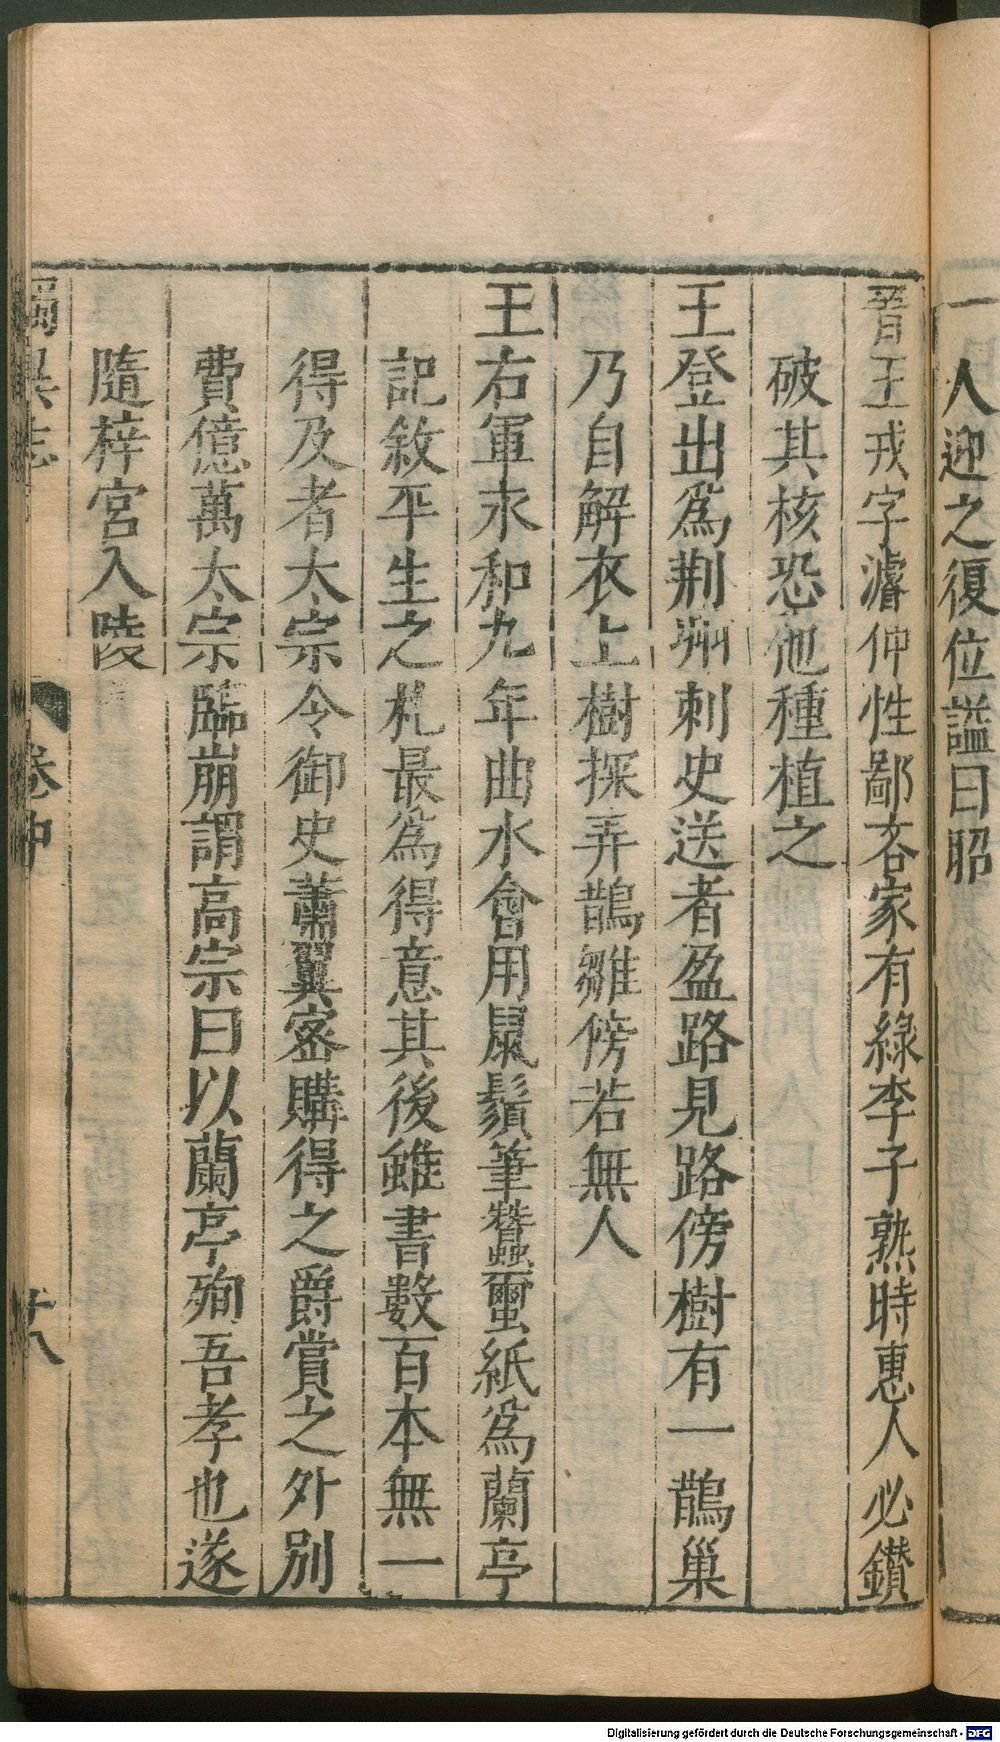 人迎之復位謚曰昭
晉王戎字濬仲性鄙吝家有綠李子熟時惠人必鑽
破其核恐他種植之
王登出爲荆州刺史送者盈路見路傍樹有一鵲巢
乃自解衣上樹探弄鵲雛傍若無人
王右軍永和九年曲水會用鼠鬚筆蠶蠒紙爲蘭亭
記敘平生之札最爲得意其後雖書數百本無一
得及者太宗令御史蕭翼密購得之爵賞之外別
費億萬太宗臨崩謂高宗曰以蘭亭殉吾孝也遂
隨梓宮入陵
獨異志 卷中 廿八
Digitalisierung gefördert durch die Deutsche Forschungsgemeinschaft - DFG